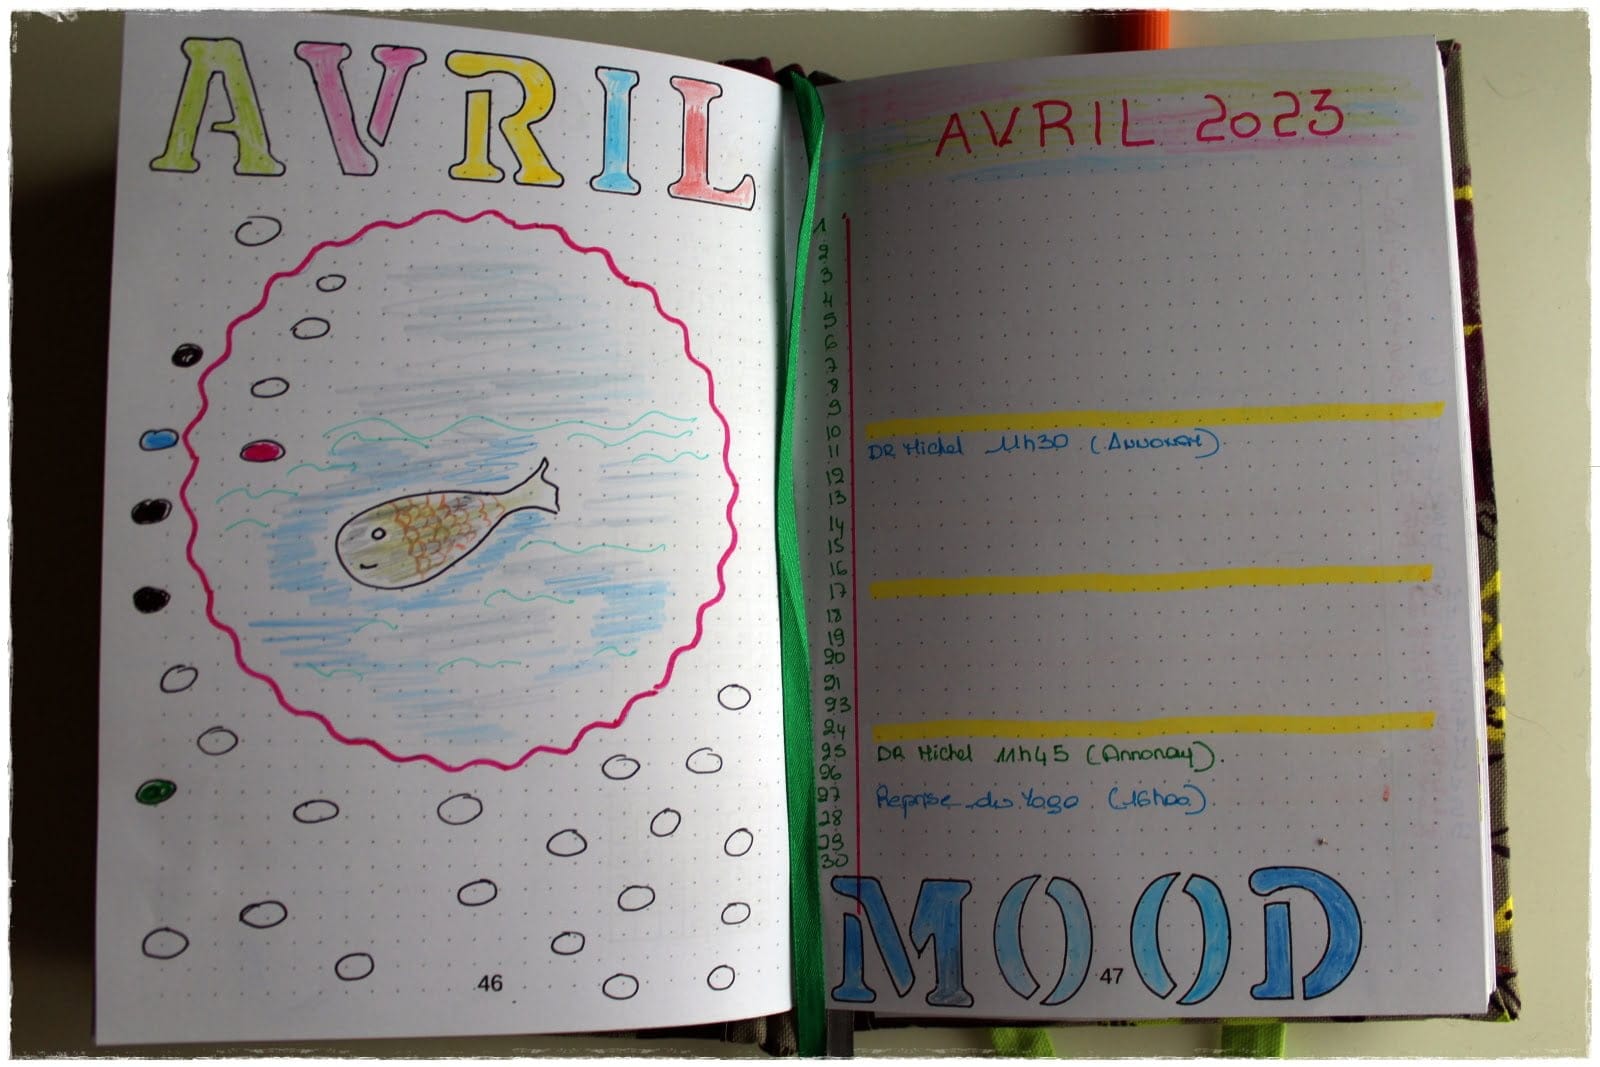 AVRIL
46
AVRIL 2023
1
2
3
4
5
6
7
8
9
10
11 DR Michel 11h30 (Annonay)
12
13
14
15
16
17
18
19
20
21
23
24
25 DR Michel 11h45 (Annonay).
26
27 Reprise du Yoga (16h00)
28
29
30
MOOD
47